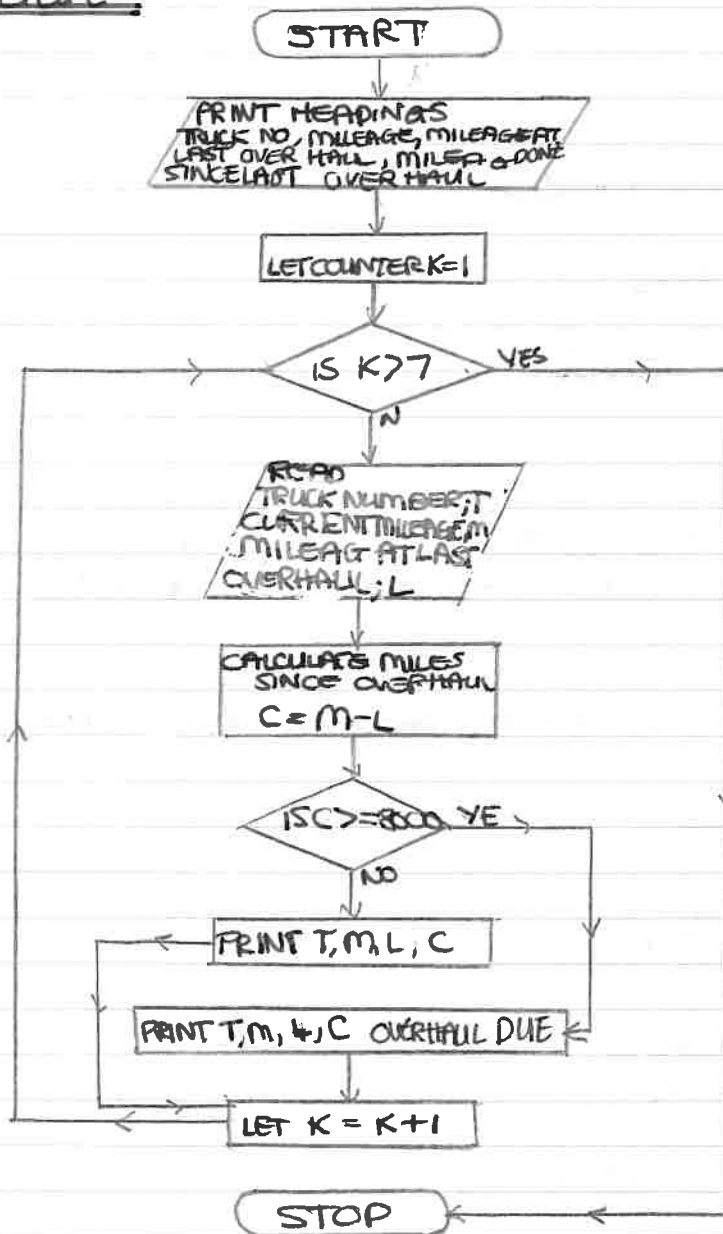 START
PRINT HEADINGS
TRUCK NO, MILEAGE, MILEAGE AT
LAST OVER HAUL, MILEAG DONE
SINCE LAST OVER HAUL
LET COUNTER K=1
IS K>7
YES
N
READ
TRUCK NUMBER;T
CURRENT MILEAGE,M
MILEAG AT LAST
OVERHAUL;L
CALCULATE MILES
SINCE OVERHAUL
C = M-L
IS C>=8000 YE
NO
PRINT T,M,L, C
PRINT T,M, L,C OVERHAUL DUE
LET K = K+1
STOP